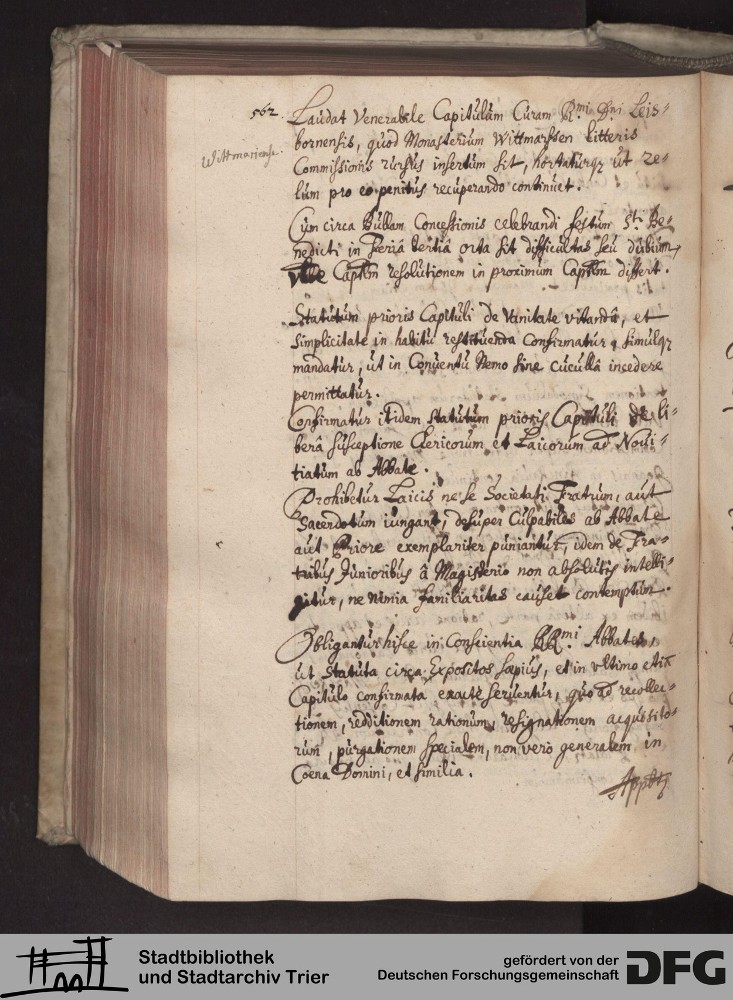 562. Laudat Venerabile Capitulum Curam Rmi Dni Leis-
bornensis, quod Monasterium Wittmarssen litteris
Wittmariense.
Commissionis rursus insertum sit, hortaturqz ut ze-
lum pro eo penitus recuperando continuet.
Cum circa Bullam Concessionis celebrandi festum Sti Be-
nedicti in feriâ tertiâ orta sit difficultas seu dubium,
Vble Captlm resolutionem in proximum Captlm differt.
Statutum prioris Capituli de Vanitate vitandâ, et
simplicitate in habitu restituenda confirmatur, simulqz
mandatur, ut in Conventu Nemo sine cucullâ incedere
permittatur.
Confirmatur itidem statutum prioris Capituli de li-
berâ susceptione Clericorum et Laicorum ad Novi-
tiatum ab Abbate.
Prohibetur Laicis ne se Societati Fratrum, aut
Sacerdotum iungant, desuper Culpabiles ab Abbate
aut Priore exemplariter puniantur, idem de Fra-
tribus Junioribus â Magisterio non absolutis intelli-
gitur, ne nimia familiaritas causet contemptum.
Obligantur hisce in Conscientia RRmi Abbates,
ut Statuta circa Expositos sæpius, et in vltimo etiã
Capitulo confirmata exactè serventur, quo ad recollec-
tionem, redditionem rationum, resignationem acquisito-
rum, purgationem specialem, non verò generalem in
Coena Domini, et similia.
Stadtbibliothek
und Stadtarchiv Trier
gefördert von der
Deutschen Forschungsgemeinschaft
DFG